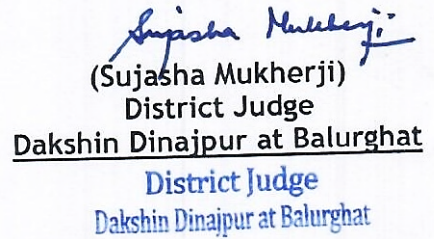 Sujasha Mukherji
(Sujasha Mukherji)
District Judge
Dakshin Dinajpur at Balurghat
District Judge
Dakshin Dinajpur at Balurghat